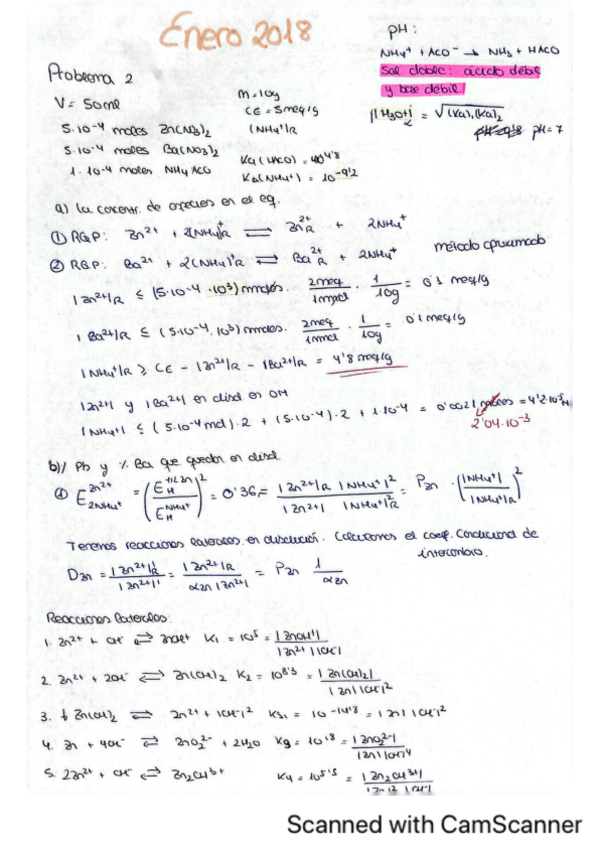 Enero 2018
pH:
NH4+ + ACO- → NH3 + HACO
Sal doble: ácido débil
y base débil
|H3O+| = √(Ka)1(Ka)2
pH=7
Problema 2
V= 50ml
m=10g
CE = 5meq/g
|NH4+|R
5·10-4 moles Zn(NO3)2
5·10-4 moles Ba(NO3)2
1·10-4 moles NH4ACO
Ka(HACO) = 10-4'8
Ka(NH4+) = 10-9'2
a) la concentr. de especies en el eq.
① RQP: Zn2+ + 2(NH4)+R ⇌ Zn2+R + 2NH4+
② RQP: Ba2+ + 2(NH4)+R ⇌ Ba2+R + 2NH4+
método aproximado
|Zn2+|R ≤ (5·10-4 ·10³) mmoles. 2meq/1mmol · 1/10g = 0'1 meq/g
|Ba2+|R ≤ (5·10-4·10³) mmoles. 2meq/1mmol · 1/10g = 0'1 meq/g
|NH4+|R ≥ CE - |Zn2+|R - |Ba2+|R = 4'8 meq/g
|Zn2+| y |Ba2+| en disol en OM
|NH4+| ≤ (5·10-4 mol)·2 + (5·10-4)·2 + 1·10-4 = 0'0021 moles = 4'2·10-2 M
2'04·10-3
b)/ % y % Ba que quedan en disol
① E Zn2+ 2NH4+ = (E Zn H / E NH4+ H)² = 0'36 = |Zn2+|R |NH4+|² / |Zn2+| |NH4+|²R = PZn · (|NH4+| / |NH4+|R)²
Tenemos reacciones laterales en disolución. Calculamos el coef. Condicional de
intercambio.
DZn = |Zn2+|'R / |Zn2+|' = |Zn2+|R / αZn |Zn2+| = PZn 1/αZn
Reacciones laterales:
1. Zn2+ + OH- ⇌ ZnOH+ K1 = 10⁵ = |ZnOH+| / |Zn2+||OH-|
2. Zn2+ + 2OH- ⇌ Zn(OH)2 K2 = 10⁸'³ = |Zn(OH)2| / |Zn||OH-|²
3. ↓ Zn(OH)2 ⇌ Zn2+ + |OH-|² KS1 = 10-14'8 = |Zn||OH-|²
4. Zn + 4OH- ⇌ ZnO2 2- + 2H2O = |ZnO2 2-| / |Zn||OH-|⁴
5. 2Zn2+ + OH- ⇌ Zn2OH3+ K4 = 10⁵'⁵ = |Zn2OH3+| / |Zn|² |OH-|
Scanned with CamScanner